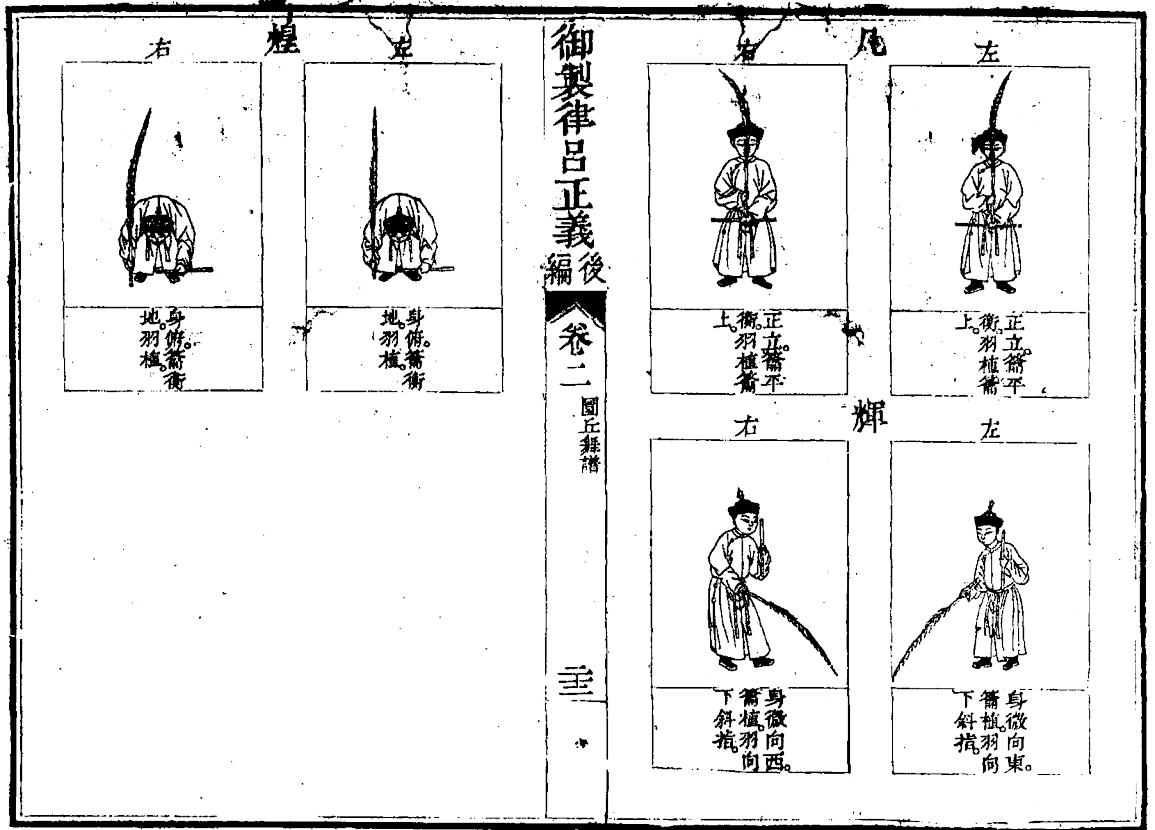 左
正立。籥平
衡。羽植籥
上。
右
正立。籥平
衡。羽植籥
上。
輝
左
身微向東。
籥植。羽向
下斜指。
右
身微向西。
籥植。羽向
下斜指。
御製律呂正義後編
卷二
圜丘舞譜
煌
左
身俯。籥衡
地。羽植。
右
身俯。籥衡
地。羽植。